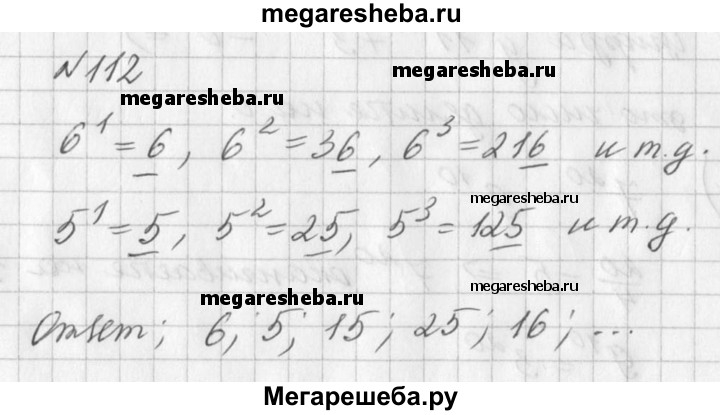 megaresheba.ru
№112
megaresheba.ru
megaresheba.ru
6¹ = 6, 6² = 36, 6³ = 216 и т.д.
megaresheba.ru
5¹ = 5, 5² = 25, 5³ = 125 и т.д.
megaresheba.ru
megaresheba.ru
Ответ; 6; 5; 15; 25; 16; ...
Мегарешеба.ру